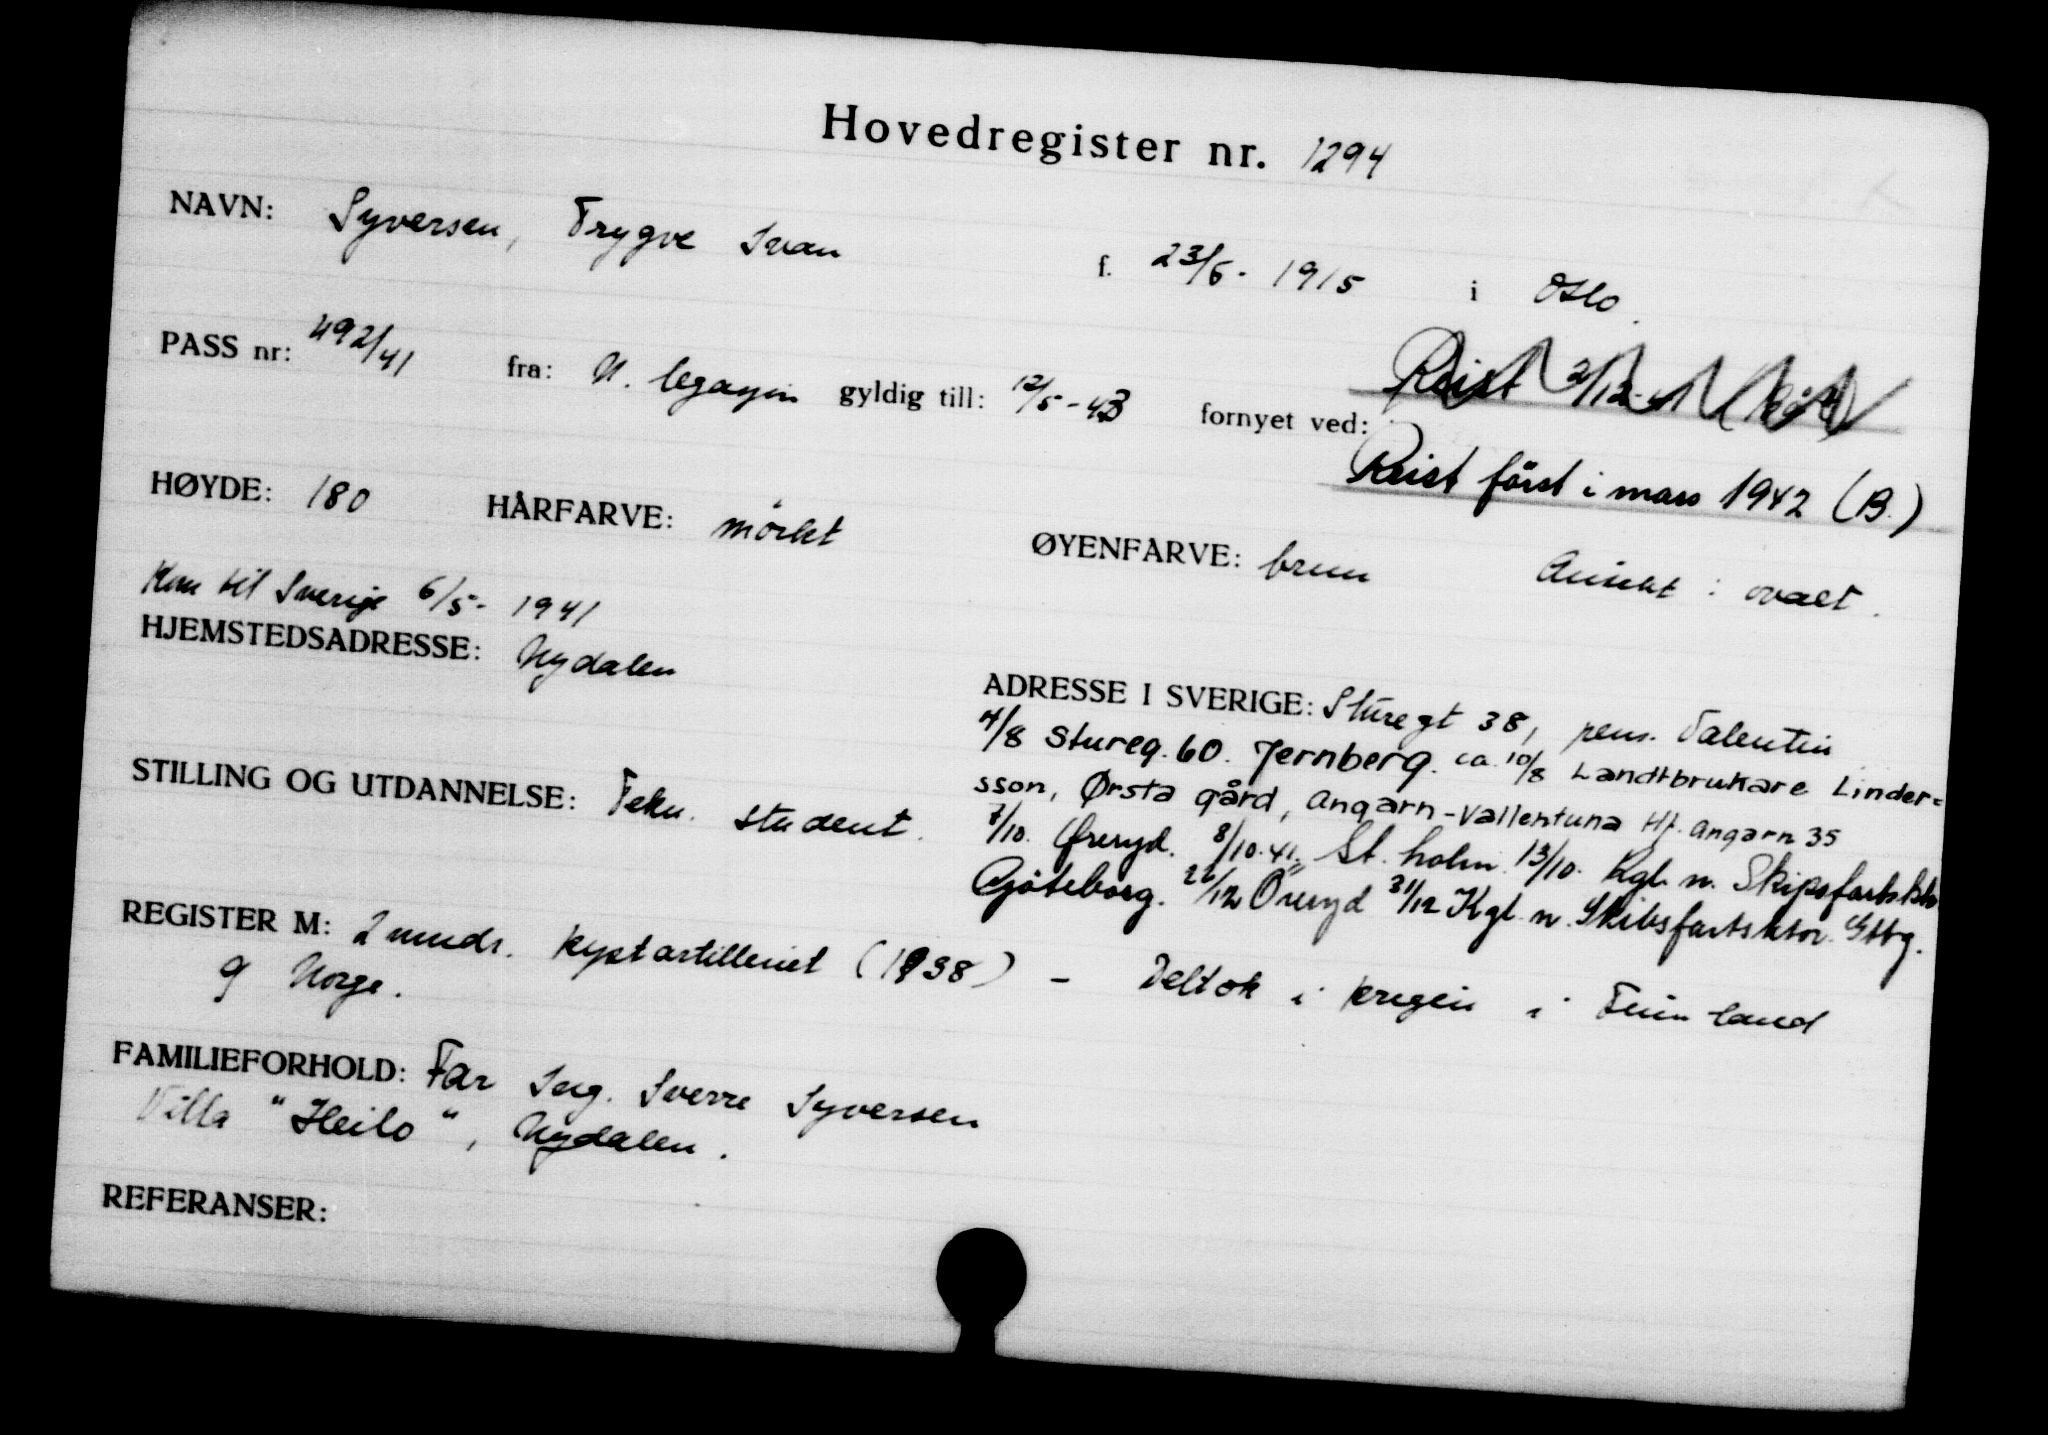 Hovedregister nr. 1294
NAVN: Syversen, Trygve Ivan f. 23/6 - 1915 i Oslo.
PASS nr: 492/41 fra: N. legasjon gyldig till: 12/5 - 43 fornyet ved: Reist 2/12-41
Reist först i mars 1942 (B.)
HØYDE: 180 HÅRFARVE: mörkt ØYENFARVE: brun Ansikt: ovalt.
Kom til Sverige 6/5 - 1941
HJEMSTEDSADRESSE: Nydalen
ADRESSE I SVERIGE: Sturegt 38, pens. Valentin
4/8 Stureg. 60. Jernberg. ca. 10/8 Landtbrukare Linder=
sson, Ørsta gård, Angarn-Vallentuna tlf. Angarn 35
7/10. Øreryd. 8/10.41. St. holm. 13/10. Kgl. n. Skipsfartsktr
Göteborg. 22/12 Öreryd 31/12 Kgl. n. Skibsfartsktor. Gtbg.
STILLING OG UTDANNELSE: Tekn. student.
REGISTER M: 2 mndr. kystartilleriet (1938) - Deltok i krigen i Finnland
og Norge.
FAMILIEFORHOLD: Far Ing. Sverre Syversen
Villa "Heilo", Nydalen.
REFERANSER: